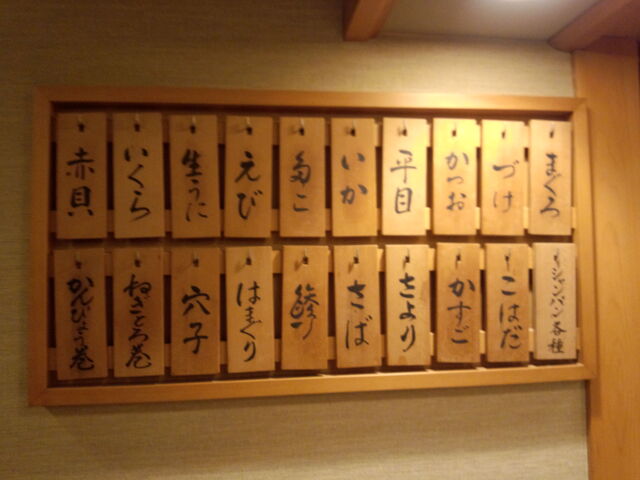 まぐろ
づけ
かつお
平目
いか
えび
生うに
いくら
赤貝
シャンパン各種
こはだ
かすご
さより
さば
はまぐり
穴子
ねぎとろ巻
かんぴょう巻